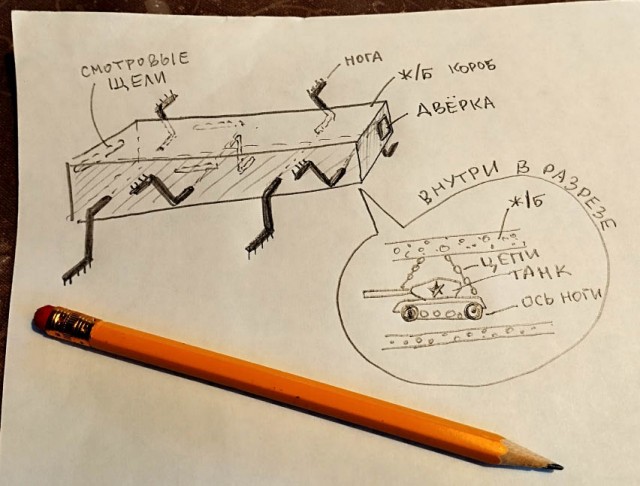 СМОТРОВЫЕ
ЩЕЛИ
НОГА
Ж/Б КОРОБ
ДВЁРКА
ВНУТРИ В РАЗРЕЗЕ
Ж/Б
ЦЕПИ
ТАНК
ОСЬ НОГИ